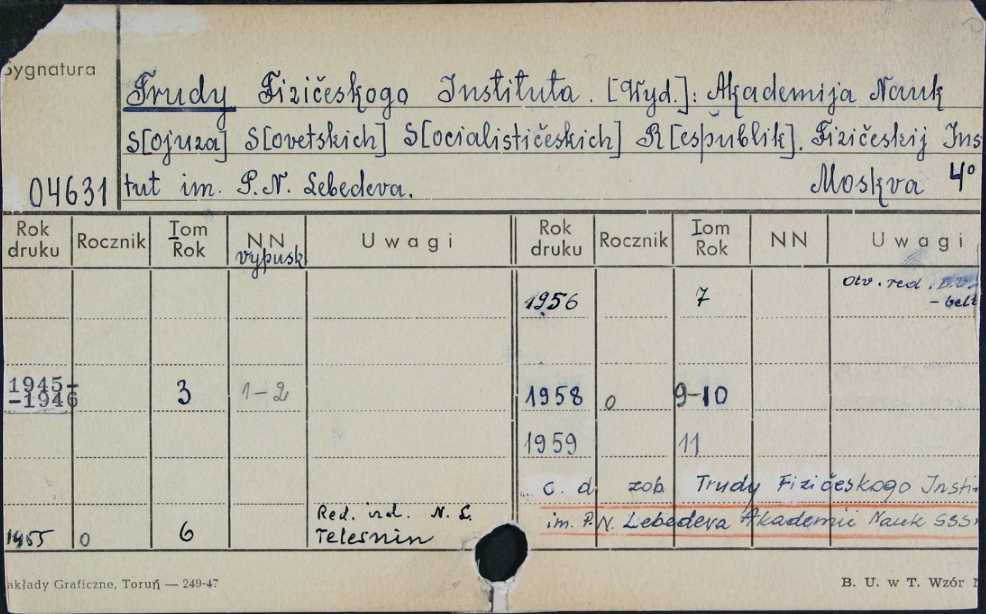 Sygnatura
Trudy Fizičeskogo Instituta. [Wyd.]: Akademija Nauk
S[ojuza] S[ovetskich] S[ocialističeskich] R[espublik]. Fizičeskij Ins
04631 tut im. P.N. Lebedeva. Moskva 4°
Rok druku Rocznik Tom Rok NN vypusk Uwagi Rok druku Rocznik Tom Rok NN Uwagi
1956 7 Otv. red.
1945-
-1946 3 1-2 1958 0 9-10
1959 11
c. d. zob. Trudy Fizičeskogo Insti-
im. P.N. Lebedeva Akademii Nauk SSS
1955 0 6 Red. izd. N. L.
Telesnin
akłady Graficzne, Toruń — 249-47 B. U. w T. Wzór